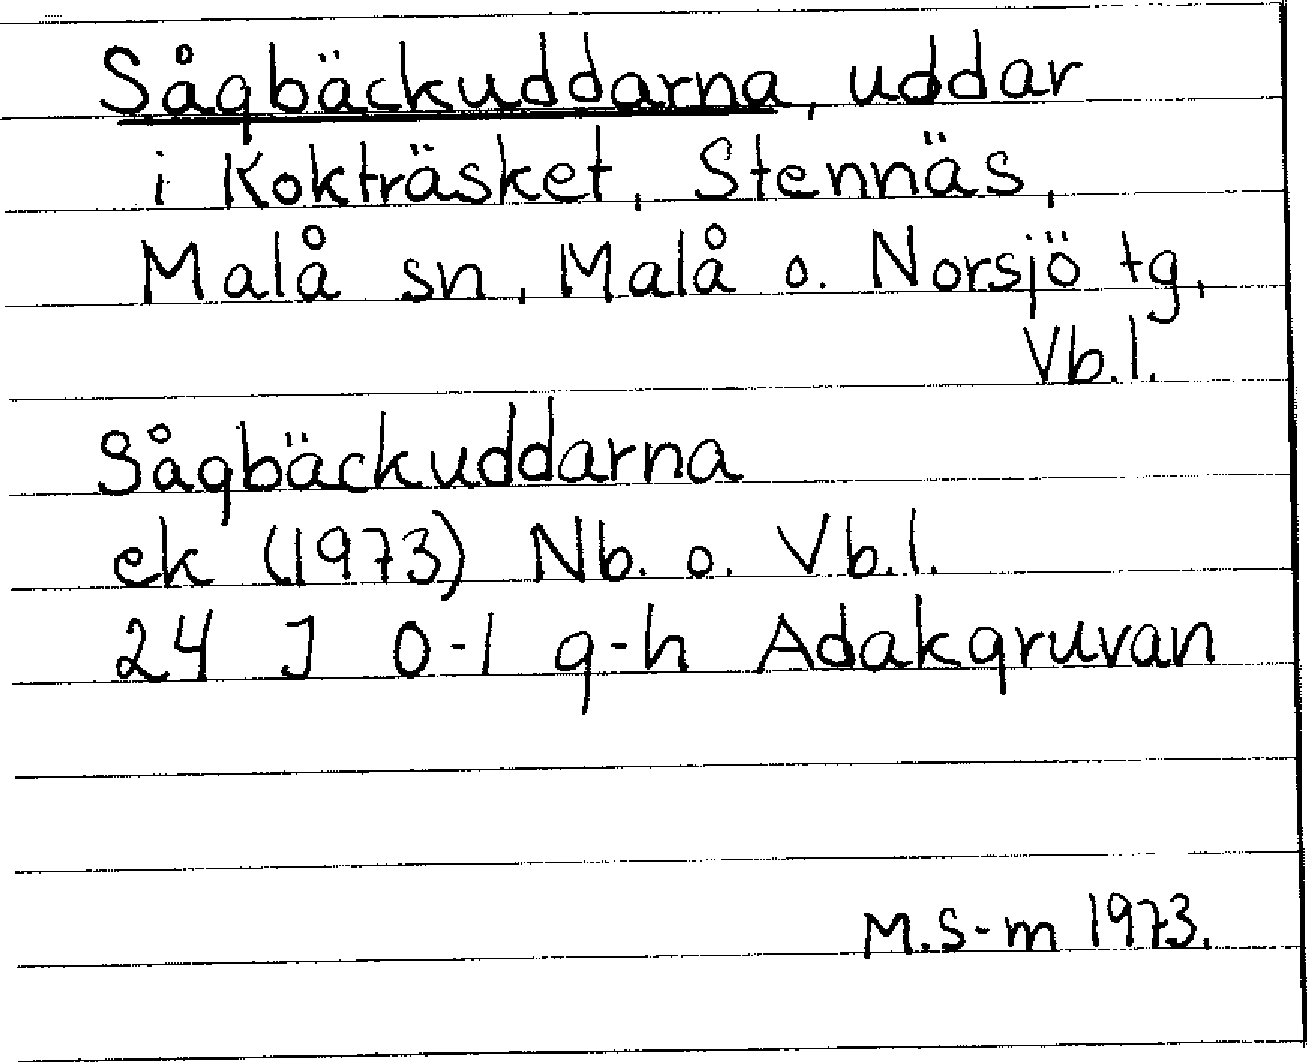 Sågbäckuddarna, uddar
i Kokträsket, Stennäs,
Malå sn, Malå o. Norsjö tg,
Vb.l.
Sågbäckuddarna
ek (1973) Nb. o. Vb.l.
24 J 0-1 g-h Adakgruvan
M.S-m 1973.